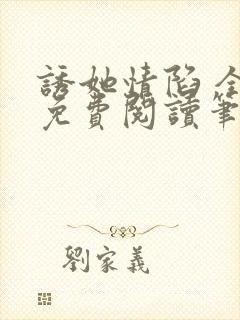 誘她情陷 全
免費閱讀筆
劉家義